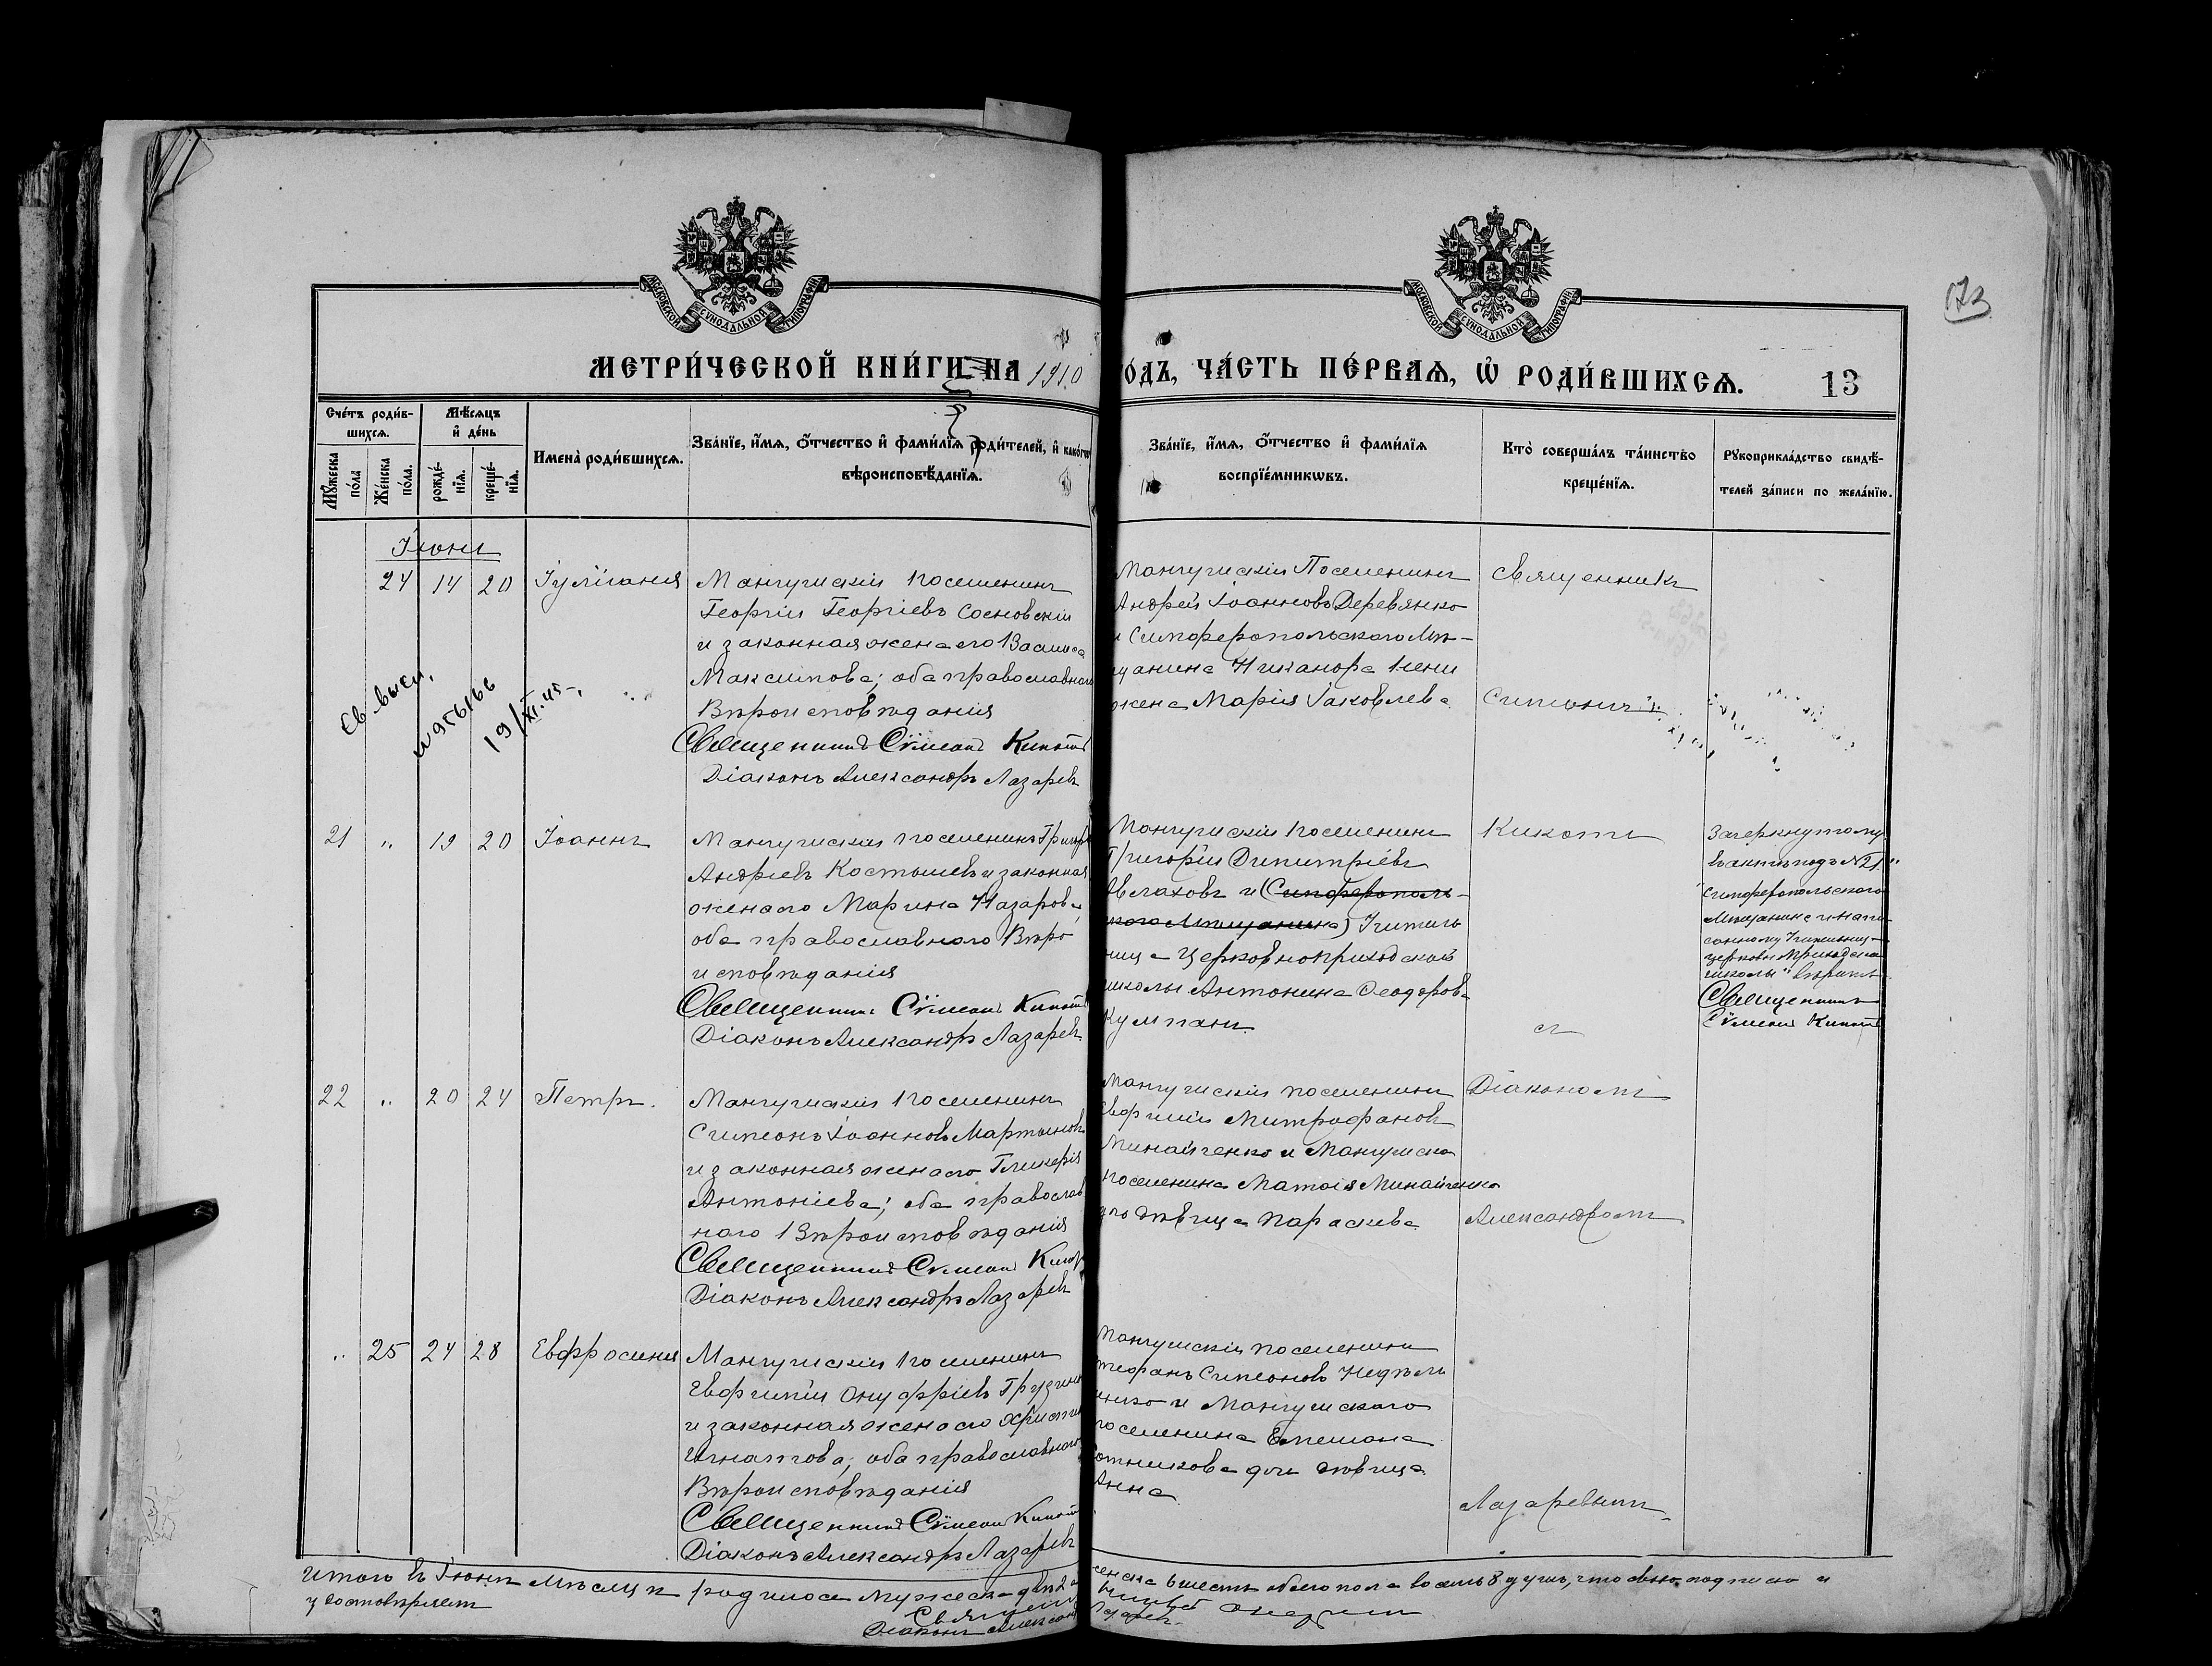 МОСКОВСКОЙ СѴНОДАЛЬНОЙ ТИПОГРАФІИ
МОСКОВСКОЙ СѴНОДАЛЬНОЙ ТИПОГРАФІИ
173
МЕТРИ́ЧЕСКОЙ КНИ́ГИ НА 1910
ОДЪ, ЧА́СТЬ ПЕ́РВАЯ, Ѡ РОДИ́ВШИХСѦ.
13
Сче́тъ роди́в-
шихсѧ.
Мꙋ́жеска по́ла
Же́нска по́ла.
Мѣ́сѧцъ
и҆ де́нь
рожде́-
нїѧ.
креще́-
нїѧ.
Имена̀ роди́вшихсѧ.
Зва́нїе, и҆́мѧ, ѻ҆́тчество и҆ фами́лїѧ роди́телей, и҆ како́гѡ
вѣроисповѣ́данїѧ.
Зва́нїе, и҆́мѧ, ѻ҆́тчество и҆ фами́лїѧ
воспрїе́мникѡвъ.
Кто̀ соверша́лъ та́инство
креще́нїѧ.
Рꙋкоприкла́дство свидѣ́-
телей за́писи по жела́нїю.
Іюнь
24 14 20 Іуліанія
Мангушскій поселенинъ
Георгій Георгіевъ Сосновскій
и законная жена его Васса
Максимова; оба православнаго
Вѣроисповѣданія
Священникъ Сѵмеонъ Кикотъ
Діаконъ Александръ Лазаревъ
Мангушскій Поселенинъ
Андрей Іоанновъ Деревянко
и Симферопольскаго Мѣ-
щанина Никанора
жена Марія Іаковлева
Священникъ
Симеонъ
Св. выд.
19/XI.45
21 " 19 20 Іоаннъ
Мангушскій поселенинъ Григорій
Андреевъ Костышевъ и законная
жена его Марина Назарова,
оба православнаго Вѣро
исповѣданія
Священникъ Сѵмеонъ Кикотъ
Діаконъ Александръ Лазаревъ
Мангушскій поселенинъ
Григорій Димитріевъ
Авлаховъ и (Симферополь-
скаго Мѣщанина) Учитель
ница Церковноприходской
школы Антонина Ѳеодорова
Кумпанъ.
Кикотъ
съ
Зачеркнутому
въ актѣ подъ № 21 "
Симферопольскаго
Мѣщанина и напи-
санному Учительница
церковн. приходской
школы" вѣрить
Священникъ
Сѵмеонъ Кикотъ
22 " 20 24 Петръ.
Мангушскій поселенинъ
Симеонъ Іоанновъ Мартыновъ
и законная жена его Гликерія
Антоніева; оба православ
наго Вѣроисповѣданія
Священникъ Сѵмеонъ Кикотъ
Діаконъ Александръ Лазаревъ
Мангушскій поселенинъ
Евфимій Митрофановъ
Минайченко и Мангушска
поселенина Матѳія Минайченко
дочь дѣвица Параскева
Діакономъ
Александромъ
" 25 24 28 Евфросинія
Мангушскій поселенинъ
Евфимій Онуфріевъ
и законная жена его Христина
Игнатова; оба православнаго
Вѣроисповѣданія
Священникъ Сѵмеонъ Кикотъ
Діаконъ Александръ Лазаревъ
Мангушскій поселенинъ
Стефанъ Симеоновъ Недѣль
и Мангушскаго
поселенина Емеліана
дочь дѣвица
Анна
Лазаревымъ
Итого въ Іюнѣ Мѣсяцѣ родилось мужеска два 2
женска 6 шесть обоего пола восемь 8 душъ, что свою подписью и
удостовѣряетъ
Священникъ
Діаконъ Александръ Лазаревъ